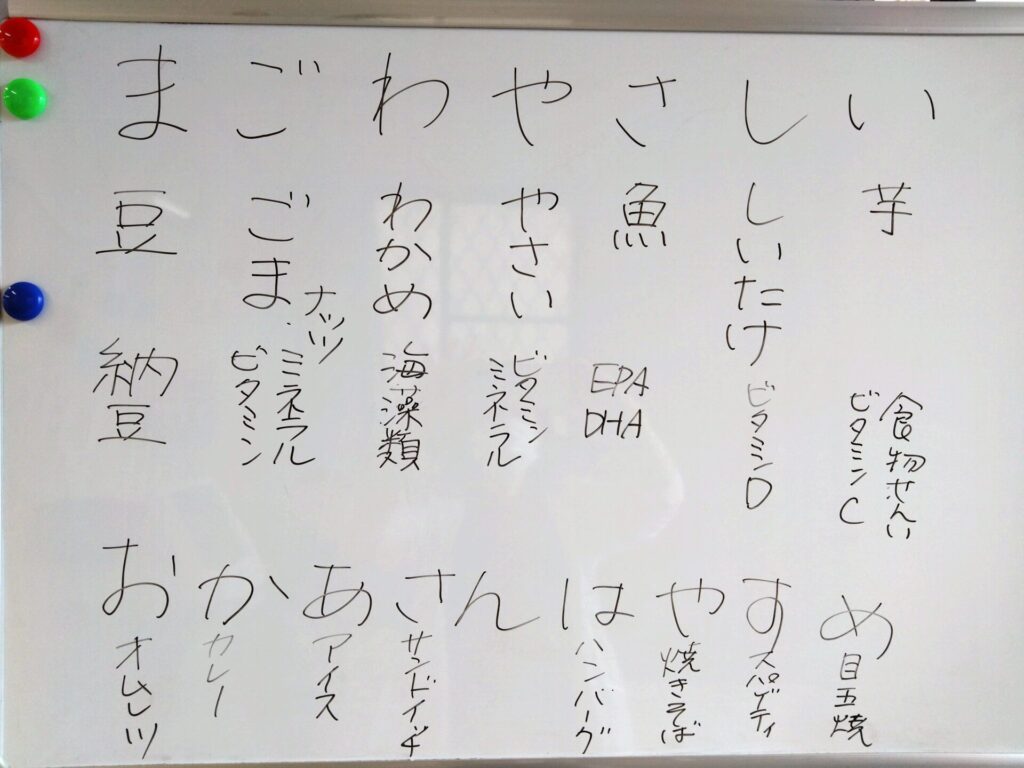 まごわやさしい
豆
納豆
ごま
ナッツ
ミネラル
ビタミン
わかめ
海藻類
やさい
ビタミン
ミネラル
魚
EPA
DHA
しいたけ
ビタミンD
芋
食物せんい
ビタミンC
おかあさんはやすめ
オムレツ
カレー
アイス
サンドイッチ
ハンバーグ
焼きそば
スパゲティ
目玉焼